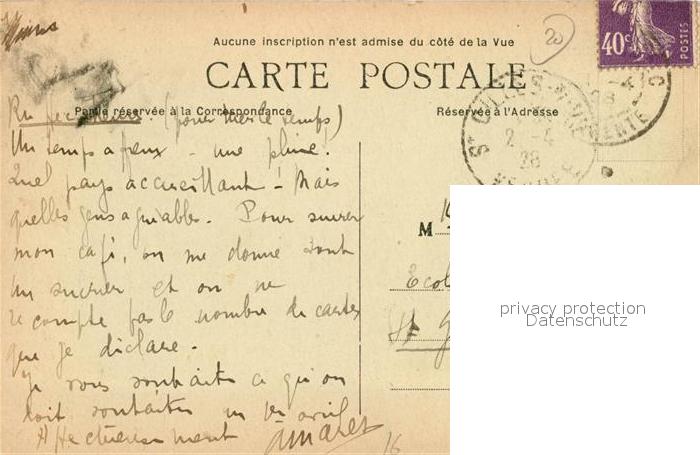 Aucune inscription n'est admise du côté de la Vue
20
40c
POSTES
CARTE POSTALE
Partie réservée à la Correspondance
Réservée à l'Adresse
(pour tuer le temps)
Un temps affreux - une pluie!
Quel pays accueillant! Mais
quelles gens agréables. Pour sucrer
mon café, on me donne tout
un sucrier et on ne
recompte pas le nombre de cartes
que je déclare.
Je vous souhaite ce qu'on
doit souhaiter un 1er avril
Affectueusement
16
2-4
28
M
Ecol
St G
privacy protection
Datenschutz